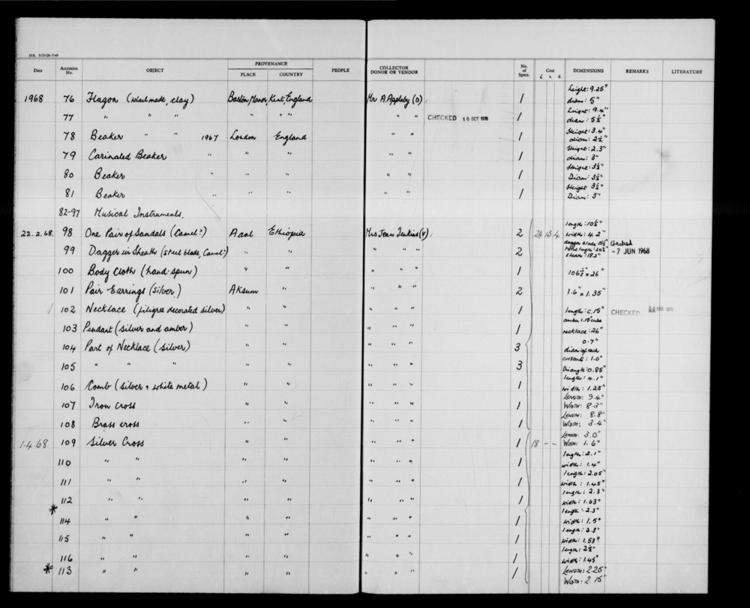 Date Accession No. OBJECT PROVENANCE PLACE COUNTRY PEOPLE COLLECTOR DONOR OR VENDOR No. of Spec. Cost £ s. d. DIMENSIONS REMARKS LITERATURE
1968 76 Flagon (wheelmade, clay) Manor, Kent, England Mr A. Appleby (D) 1 height: 9.25" diam: 5"
77 " " " " " 1 height: 9.4" diam: 5½" CHECKED OCT
78 Beaker " " 1967 London England 1 Height: 3.4" diam: 2½"
79 Carinated Beaker " " " 1 Height: 2.3" diam: 3"
80 Beaker " " " 1 Height: 3½" Diam: 3½"
81 Beaker " " " 1 Height 3½" Diam: 3"
82-97 Musical Instruments.
22.2.68. 98 One Pair of Sandals (Camel?) Ethiopia Mrs Jean Jenkins (V) 2 24 13 4 length: 10½" width: 4.2"
99 Dagger in Sheath (steel blade, Camel?) " " " " " 2 British - 7 JUN 1968
100 Body Cloth (hand spun) " " " " " 1 106½" x 26"
101 Pair Earrings (silver) Aksum " " " " 2 1.6" x 1.35"
102 Necklace (filigree decorated silver) " " " " " 1 length: CHECKED
103 Pendant (silver and amber) " " " " " 1 necklace: 26"
104 Part of Necklace (silver) " " " " " 3 0.7" diam of each
105 " " " " " " " " 3 Triangle: 0.85"
106 Comb (silver + white metal) " " " " " 1 length: 4.1" width: 1.25"
107 Iron cross " " " " " 1 Length: 9.4" Width: 8.3"
108 Brass cross " " " " " 1 Length: 8.8" Width: 3.4"
1.4.68 109 Silver Cross " " " " " 1 18 - - Length: 3.0" Width: 1.6"
110 " " " " " " " 1 length: 2.1" width: 1.4"
111 " " " " " " " 1 length: 2.05" width: 1.45"
112 " " " " " " " 1 length: 2.3" width: 1.63"
* 114 " " " " " " " 1 length: 2.3" width: 1.5"
115 " " " " " " " 1 length: 2.3" width: 1.53"
116 " " " " " " " 1 length: 2½" width: 1.45"
* 113 " " " " " " " 1 Length: 2.25" Width: 2.15"